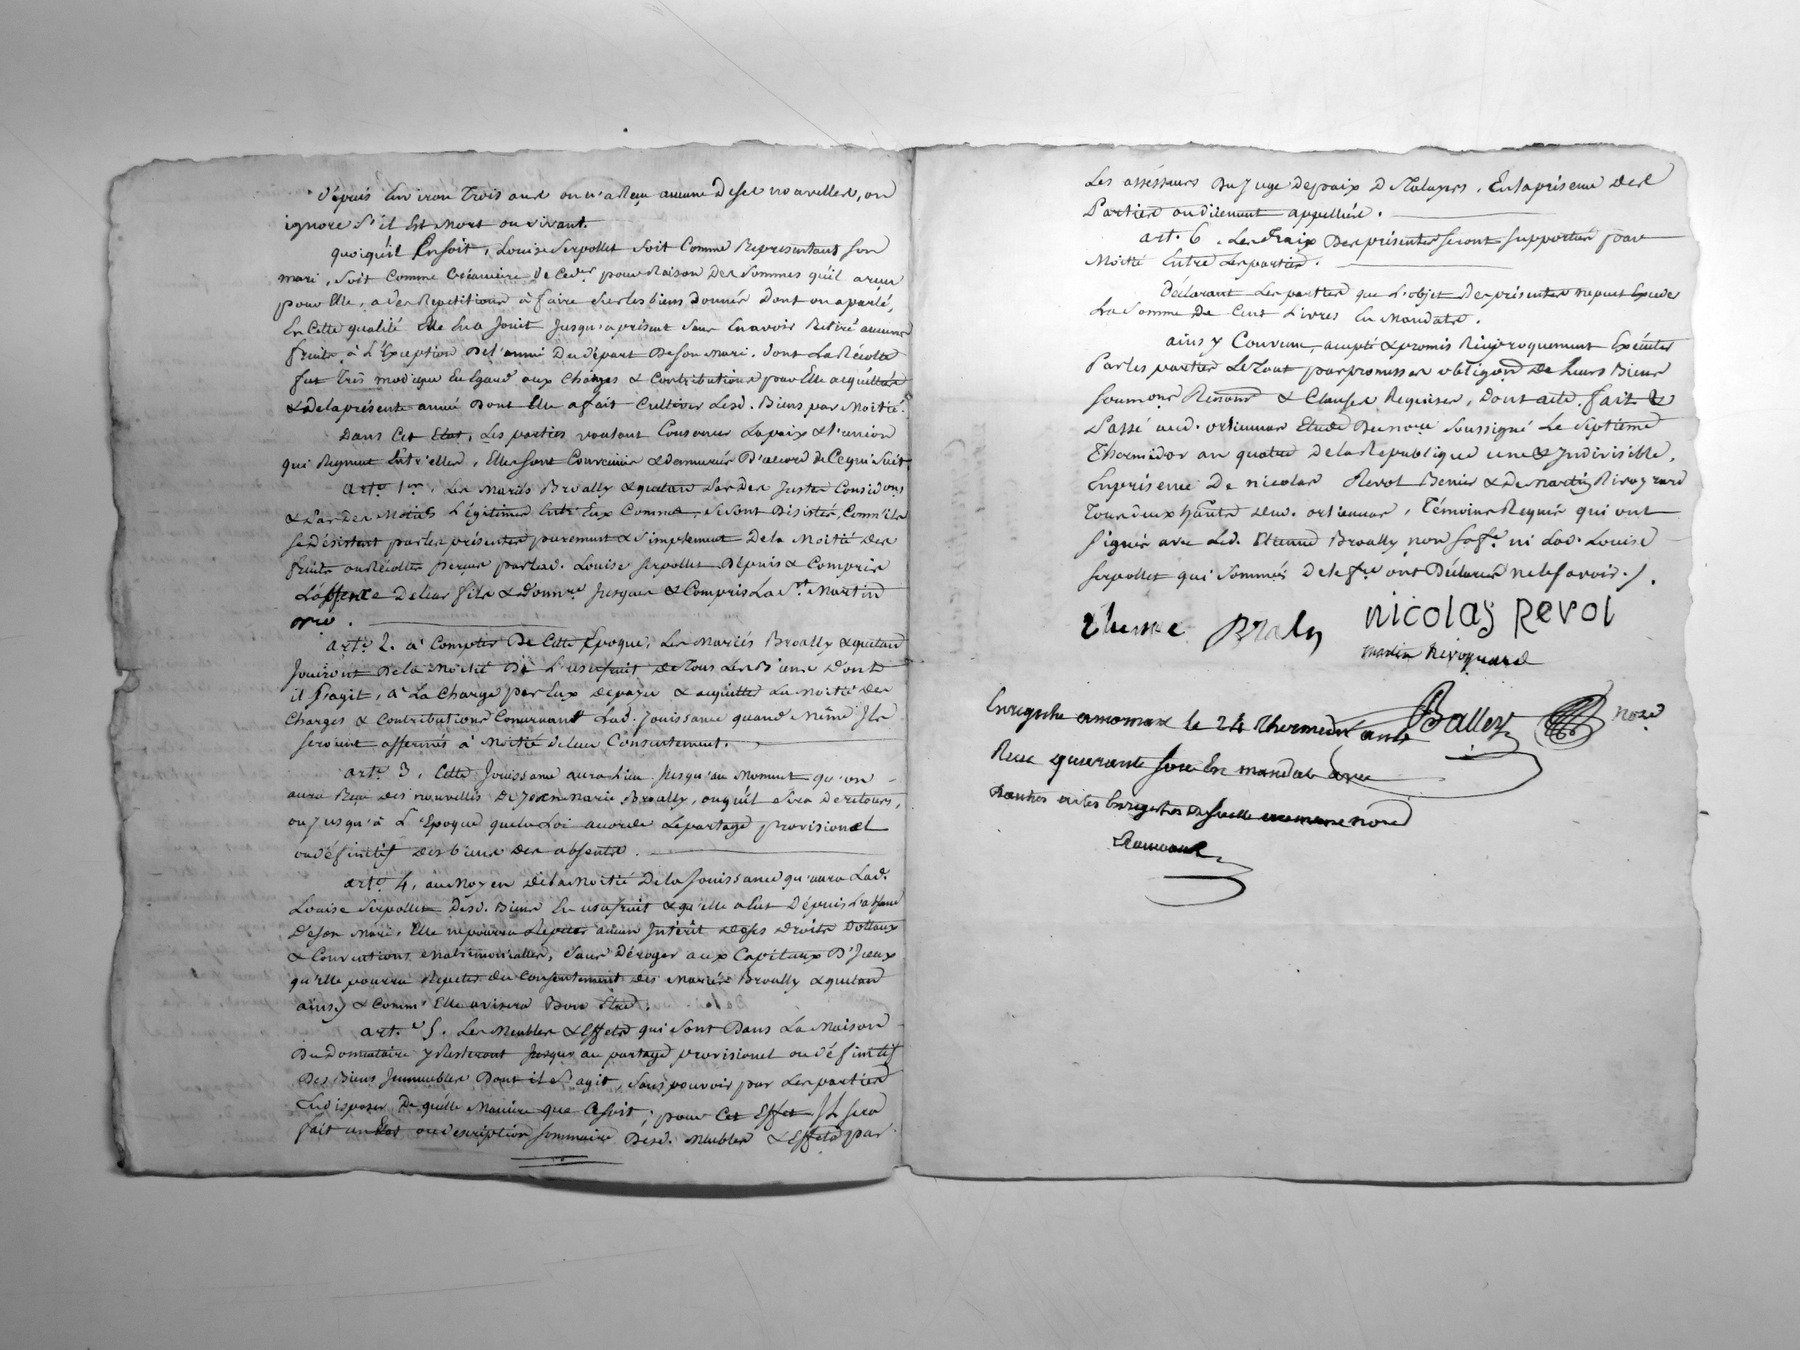 dépuis Environ Trois ans on n'a Reçu aucune de ses nouvelles, on
ignore s'il Est Mort ou vivant.
quoiqu'il Ensoit, Louise Serpollet soit Comme Representant son
mari, soit Comme Créanciere de Cedr pour Raison Des Sommes qu'il a reçu
pour Elle, a des Repetitions à faire sur les biens donnés dont on a parlé,
En Cette qualité Elle En a Jouit Jusqu'a présent sans En avoir Retiré aucuns
fruits à L'Exception De l'année Du départ De son Mari, dont La Récolte
fut très modique Eu Egard aux Charges & Contributions pour Elle acquittées
& de la présente année Dont Elle a fait Cultiver Lesd. Biens par Moitié.
Dans Cet Etat, Les parties voulant Conserver La paix & L'union
qui Regnent Entr'elles, Elles sont Convenues & demeurées D'accord de Ce qui suit
arte 1er. Les Mariés Broally & quetand Par Des Justes Considons
& Par Des Motifs Légitimes Entr'Eux Connus, se sont Désistés, Comm'ils
se Désistent par les présentes purement & simplement De la Moitié des
fruits ou Récoltes perçus par lad. Louise Serpollet Dépuis & Compris
L'absence De leur fils & donnre Jusques & Compris La St Martin
prie.
arte 2. à Compter De Cette Epoque, Les Mariés Broally & quetand
Jouiront De la Moitié De L'usufruit de Tous Les Biens Dont
il s'agit, à La Charge par Eux de payer & acquitter La Moitié des
Charges & Contributions Concernant Lad. Jouissance quand Même Ils
seroient affermés à Moitié de leur Consentement.
arte 3, Cette Jouissance aura Lieu Jusqu'au Moment qu'on
aura Reçu des nouvelles De Jean Marie Broally, ou qu'il sera de retour,
ou Jusqu'à L'Epoque que la Loi accorde Le partage provisionel
ou définitif des biens des absents.
arte 4, au Moyen de la Moitié De la Jouissance qu'aura Lad.
Louise Serpollet Desd. Biens En usufruit & qu'elle a Eut Dépuis L'absence
de son Mari, Elle ne pourra Repeter aucun Intérêt de ses droits Dottaux
& Conventions Matrimonialles, sans Déroger aux Capitaux D'Iceux
qu'elle pourra Repeter du Consentement des Mariés Broally & quetand
ainsy & Comm'Elle avisera Bon Etre.
arte 5. Les Meubles & Effets qui sont Dans La Maison
Du Donnataire y Resteront Jusqu'au partage provisionel ou définitif
Des Biens Immeubles Dont il s'agit, sans pouvoir par Les parties
En disposer De quelle Maniere que Ce soit; pour Cet Effet Il sera
fait un Etat ou description sommaire Desd. Meubles & Effets par
Les assésseurs Du Juge De paix De Taluyers, En la présence des
Parties ou düement appellées.
art. 6. Les fraix Des présentes seront supportés par
Moitié Entre Les parties.
Déclarant Les parties que L'objet Des présentes ne peut Exceder
La Somme De Cent Livres En Mandats.
ainsy Convenu, accepté & promis Réciproquement Exécuter
Par les parties Le Tout par promesses obligons De Leurs Biens
soumons Renons & Clauses Requises, Dont acte. fait &
Passé aud. orlienas Etude De nore soussigné Le septième
Thermidor an quatre de la Republique une & Indivisible,
En présence De nicolas Revol Benier & de Martin Rivoyrard
Tous deux habts dud. orlienas, Témoins Requis qui ont
signés avec Led. Etienne Broally, non sa fe ni Lad. Louise
Serpollet qui sommés de le fre ont Déclarés ne le savoir./.
Etienne Broaly nicolas Revol
martin Rivoyrard
Ballet nore
Enregistré a mornant le 24 Thermidor an 4
Recu quarante sous En mandats avec